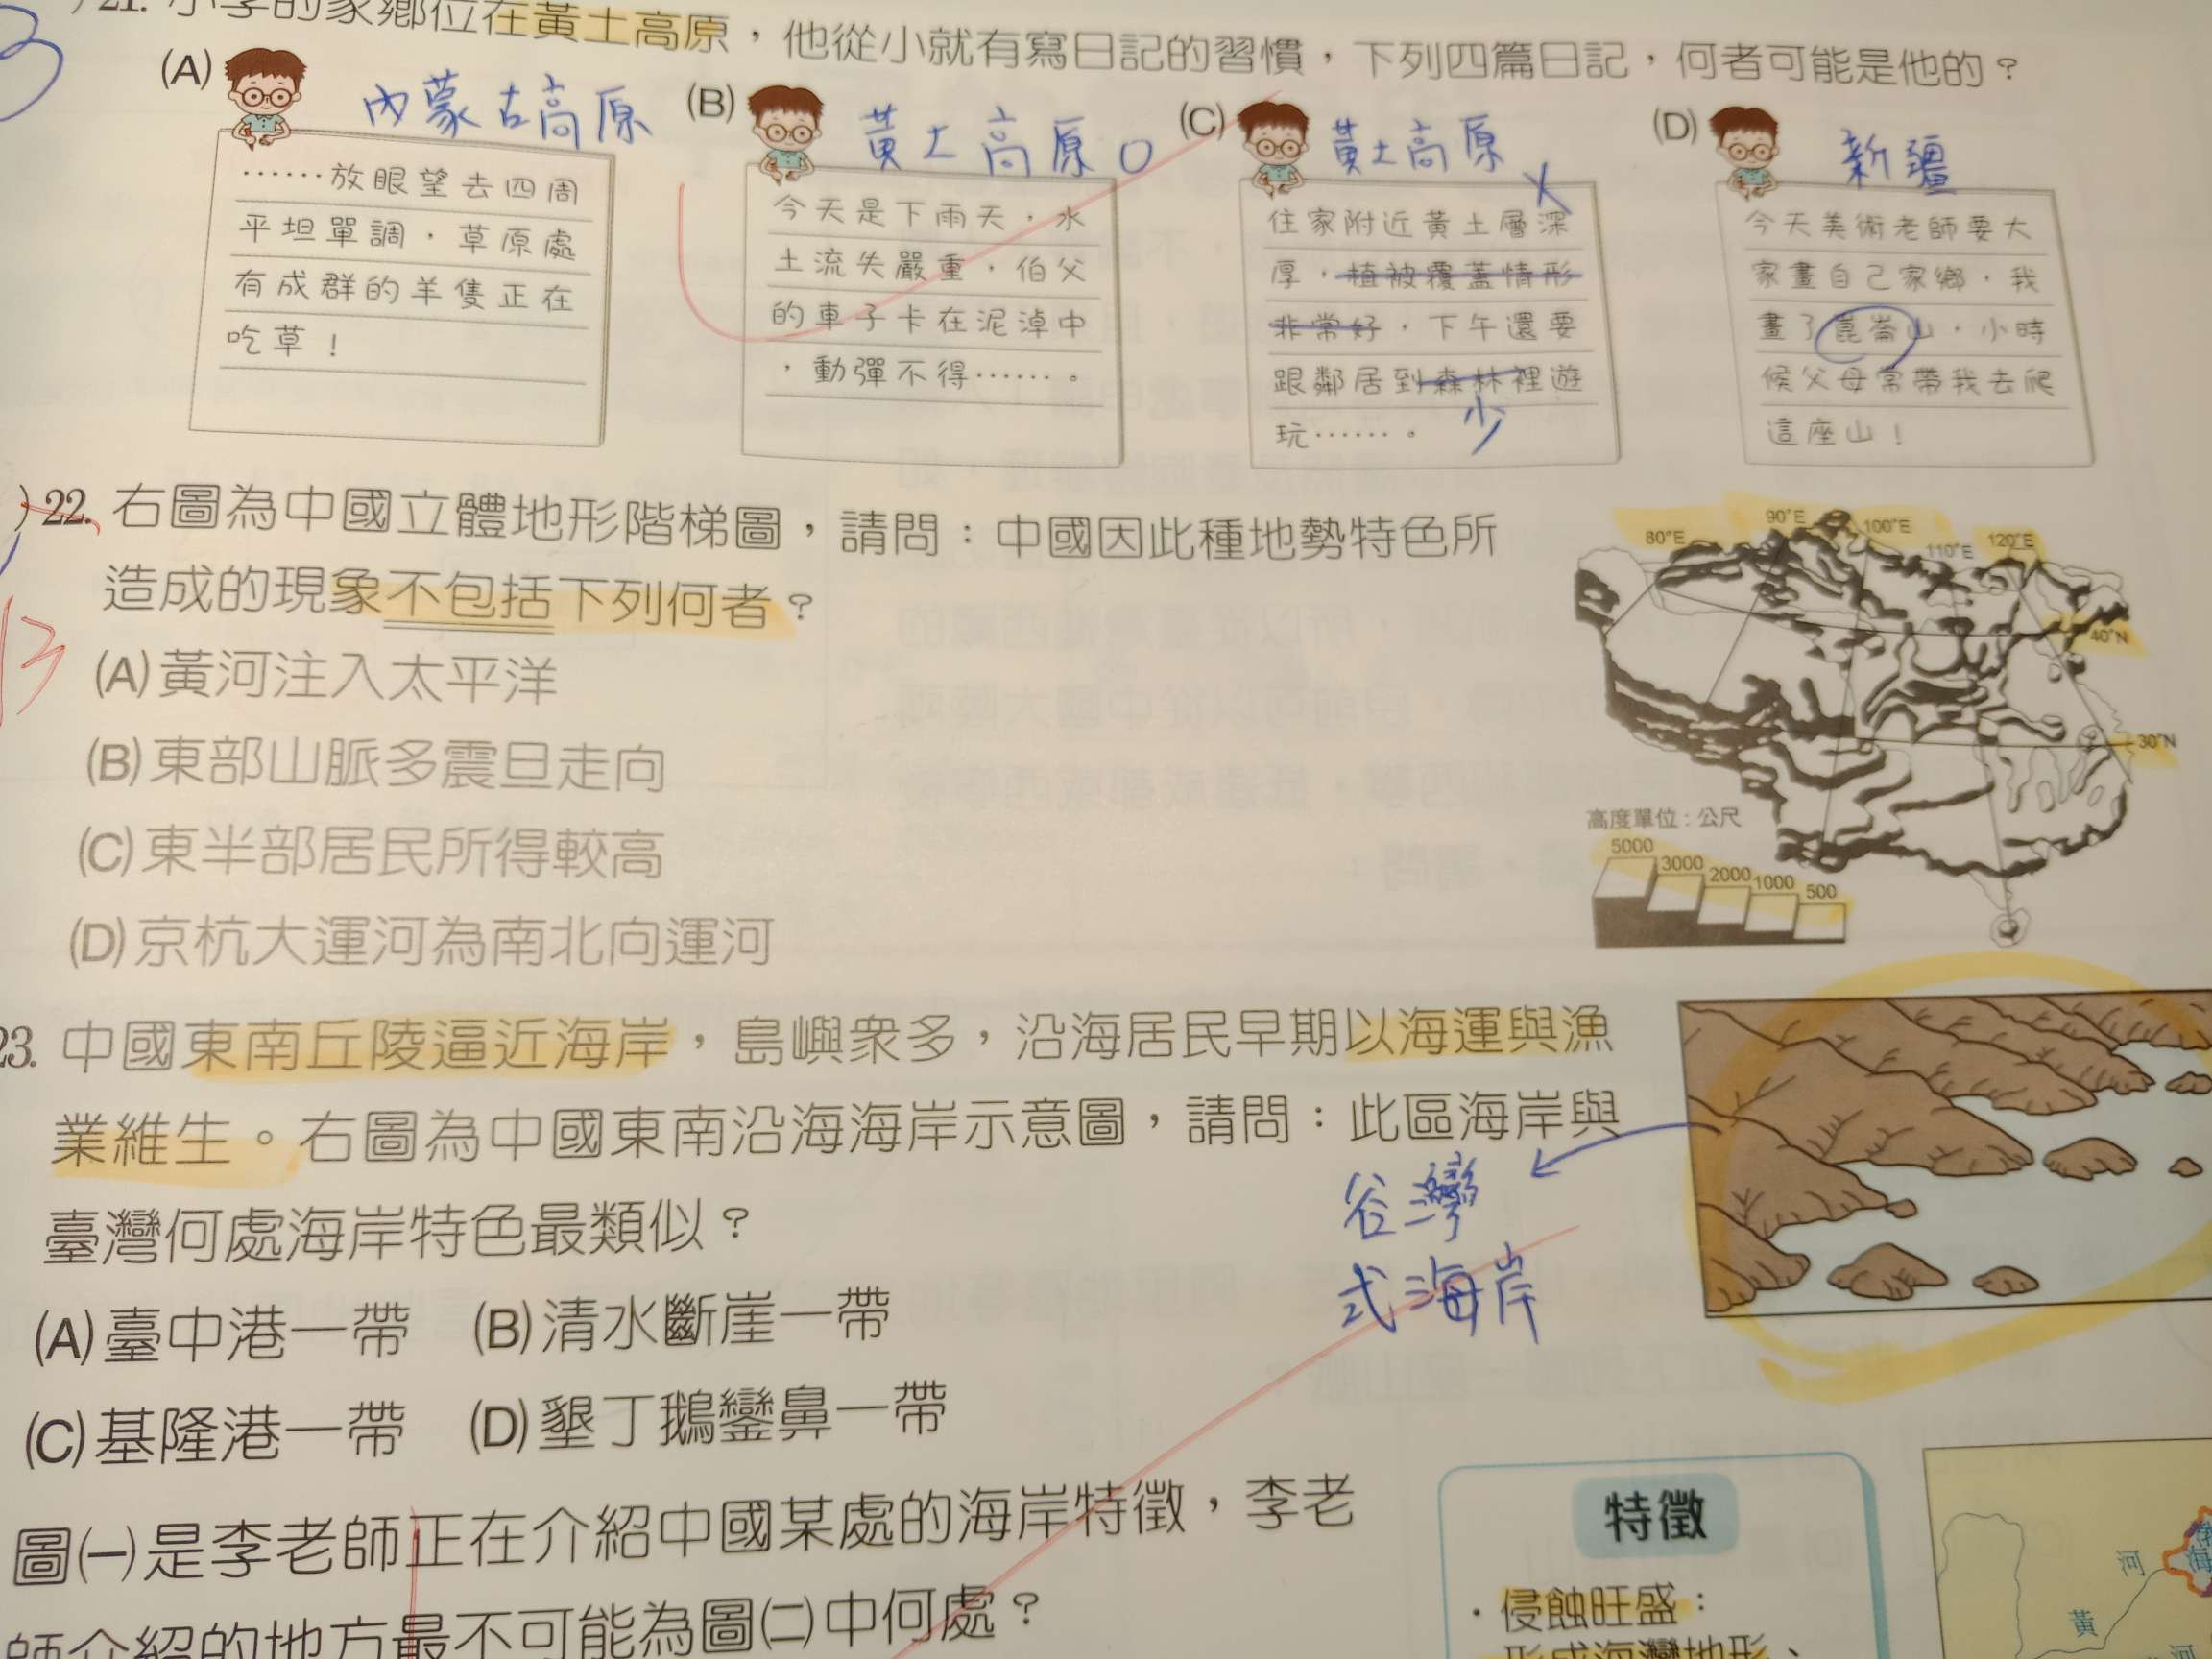 21. 小李的家鄉位在黃土高原，他從小就有寫日記的習慣，下列四篇日記，何者可能是他的？
(A)
內蒙古高原
……放眼望去四周
平坦單調，草原處
有成群的羊隻正在
吃草！
(B)
黃土高原 O
今天是下雨天，水
土流失嚴重，伯父
的車子卡在泥淖中
，動彈不得……。
(C)
黃土高原 X
住家附近黃土層深
厚，植被覆蓋情形
非常好，下午還要
跟鄰居到森林裡遊
玩……。
少
(D)
新疆
今天美術老師要大
家畫自己家鄉，我
畫了崑崙山，小時
候父母常帶我去爬
這座山！
)22. 右圖為中國立體地形階梯圖，請問：中國因此種地勢特色所
造成的現象不包括下列何者？
(A)黃河注入太平洋
(B)東部山脈多震旦走向
(C)東半部居民所得較高
(D)京杭大運河為南北向運河
80°E
90°E
100°E
110°E
120°E
40°N
30°N
高度單位：公尺
5000
3000
2000
1000
500
23. 中國東南丘陵逼近海岸，島嶼眾多，沿海居民早期以海運與漁
業維生。右圖為中國東南沿海海岸示意圖，請問：此區海岸與
臺灣何處海岸特色最類似？
谷灣
式海岸
(A)臺中港一帶 (B)清水斷崖一帶
(C)基隆港一帶 (D)墾丁鵝鑾鼻一帶
圖㈠是李老師正在介紹中國某處的海岸特徵，李老
師介紹的地方最不可能為圖㈡中何處？
特徵
・侵蝕旺盛：
形成海灣地形、
河
黃
河
海